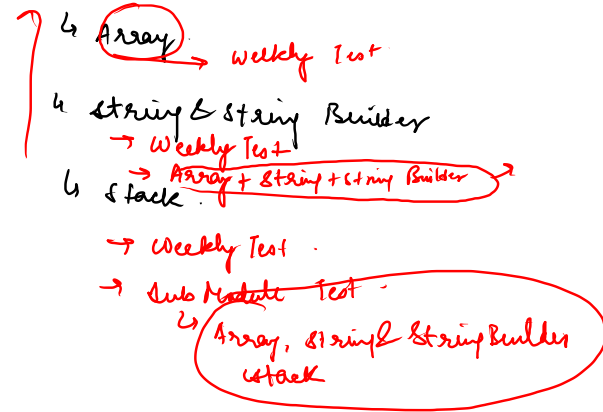 ↳ Array
→ Weekly Test
↳ String & String Builder
→ Weekly Test
→ Array + String + String Builder
↳ Stack.
→ Weekly Test.
→ Sub Module Test.
↳ Array, String & StringBuilder
stack